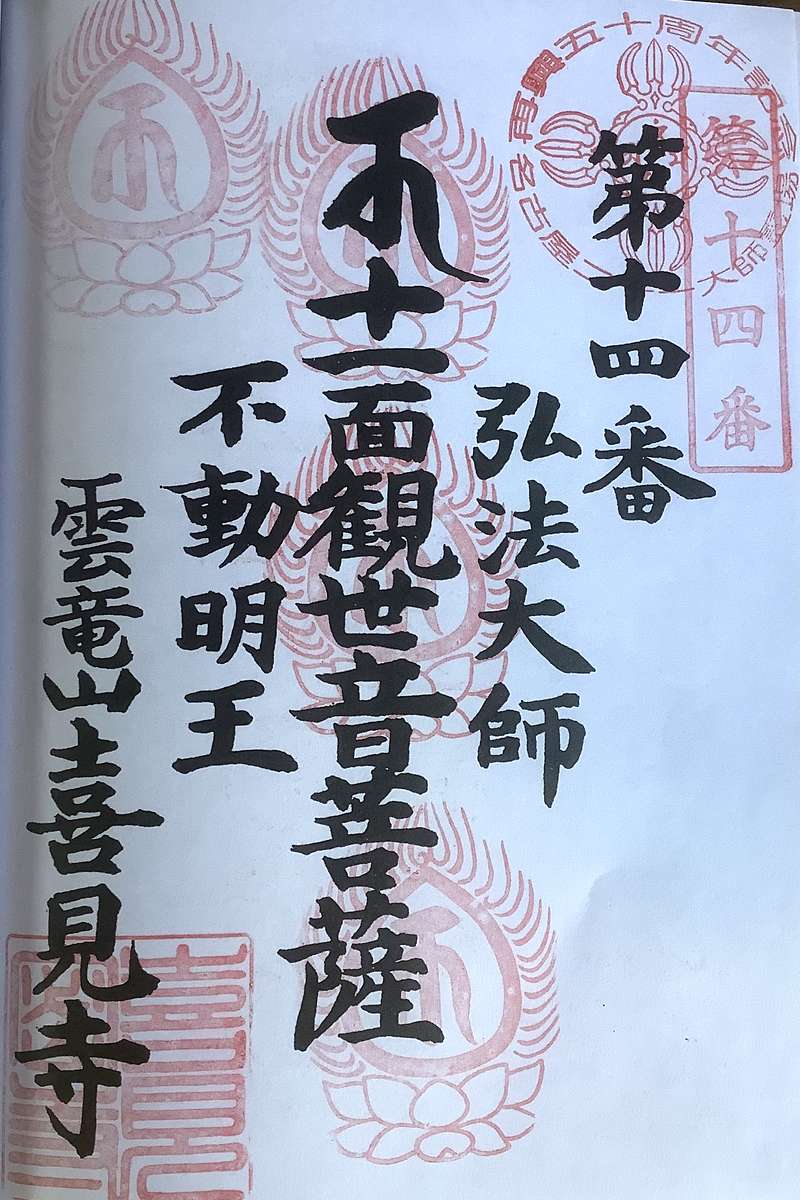 再興五十周年記念
名古屋
大師霊場
第十四番
第十四番
弘法大師
十一面観世音菩薩
不動明王
雲竜山喜見寺